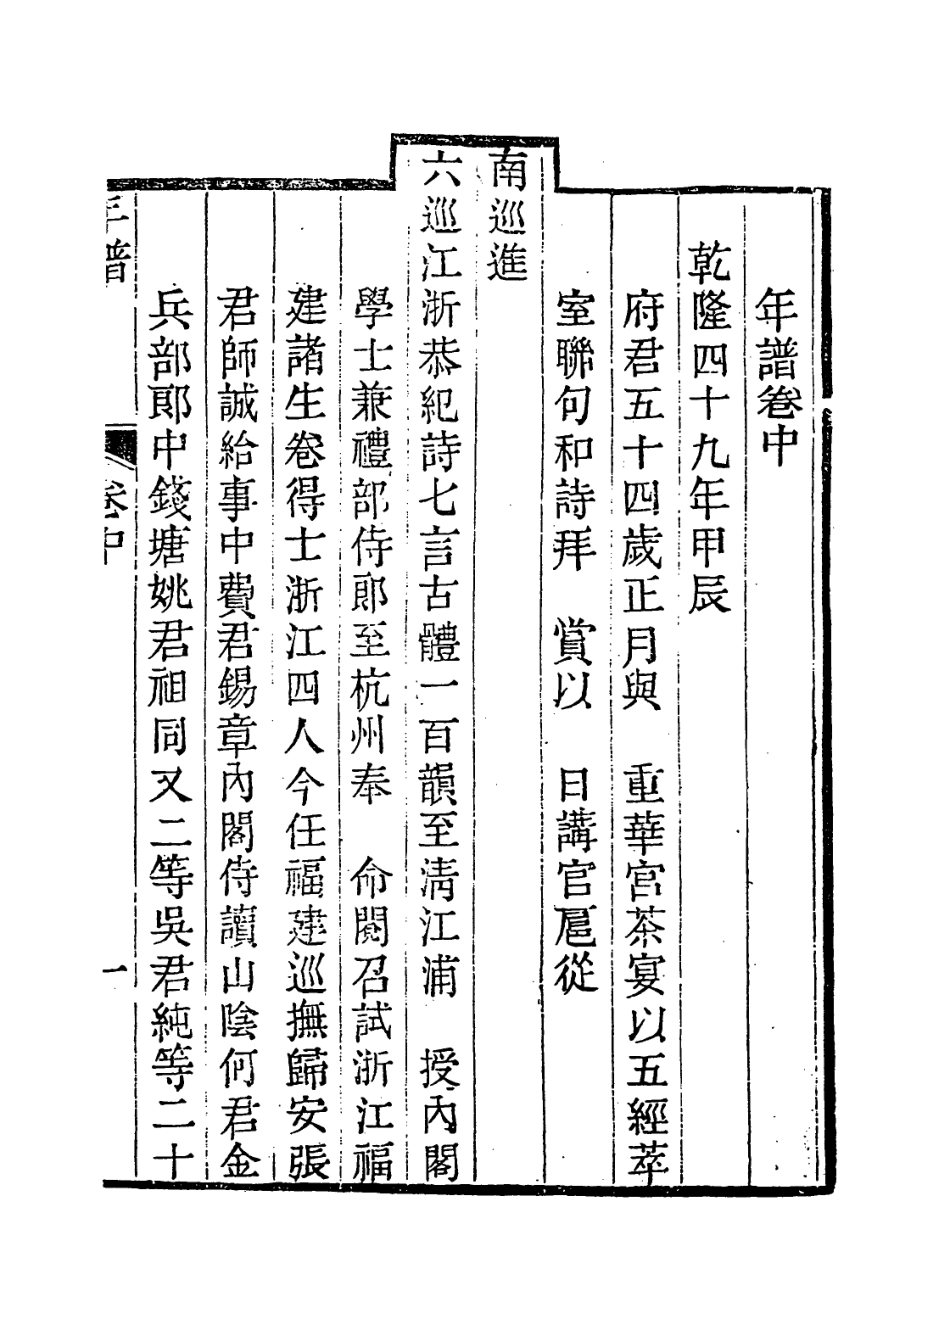 年譜卷中
乾隆四十九年甲辰
府君五十四歲正月與　重華宮茶宴以五經萃
室聯句和詩拜　賞以　日講官扈從
南巡進
六巡江浙恭紀詩七言古體一百韻至淸江浦　授內閣
學士兼禮部侍郞至杭州奉　命閱召試浙江福
建諸生卷得士浙江四人今任福建巡撫歸安張
君師誠給事中費君錫章內閣侍讀山陰何君金
兵部郞中錢塘姚君祖同又二等吳君純等二十
年譜　卷中　一